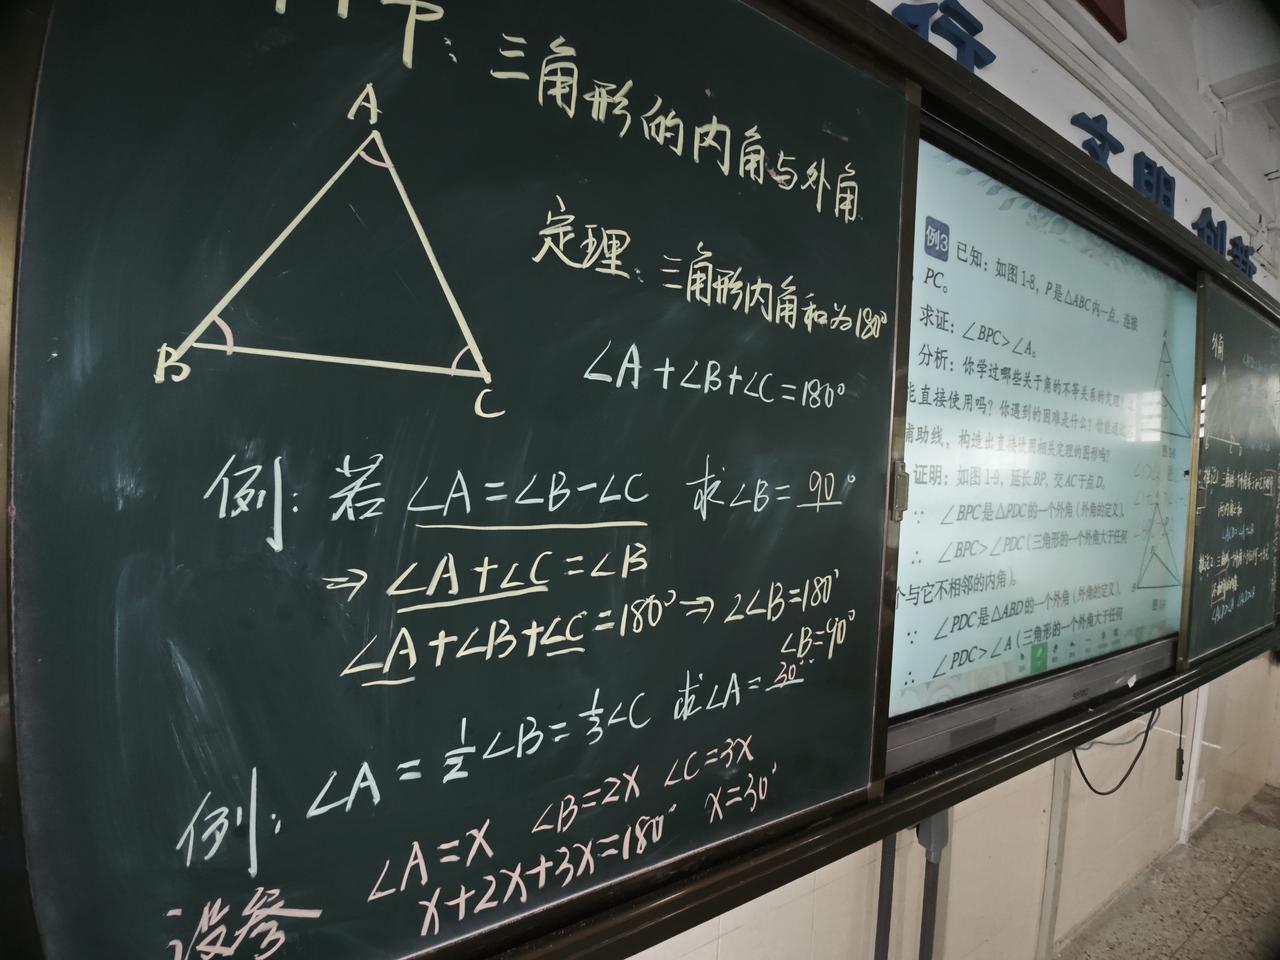 三角形的内角与外角
A
B
C
定理:三角形内角和为180°
∠A+∠B+∠C=180°
例:若 ∠A=∠B-∠C 求∠B=90°
⇒ ∠A+∠C=∠B
∠A+∠B+∠C=180° ⇒ 2∠B=180°
∠B=90°
例:∠A=1/2∠B=1/3∠C 求∠A=30°
设参 ∠A=x ∠B=2x ∠C=3x
x+2x+3x=180° x=30°
行
文明
创新
例3 已知:如图1-8,P是△ABC内一点,连接
PC。
求证:∠BPC>∠A。
分析:你学过哪些关于角的不等关系的定理?
能直接使用吗?你遇到的困难是什么?你能通过
辅助线,构造出直接使用相关定理的图形吗?
证明:如图1-9,延长BP,交AC于点D,
∵ ∠BPC是△PDC的一个外角(外角的定义),
∴ ∠BPC>∠PDC(三角形的一个外角大于任何
个与它不相邻的内角)。
∵ ∠PDC是△ABD的一个外角(外角的定义),
∴ ∠PDC>∠A(三角形的一个外角大于任何
外角